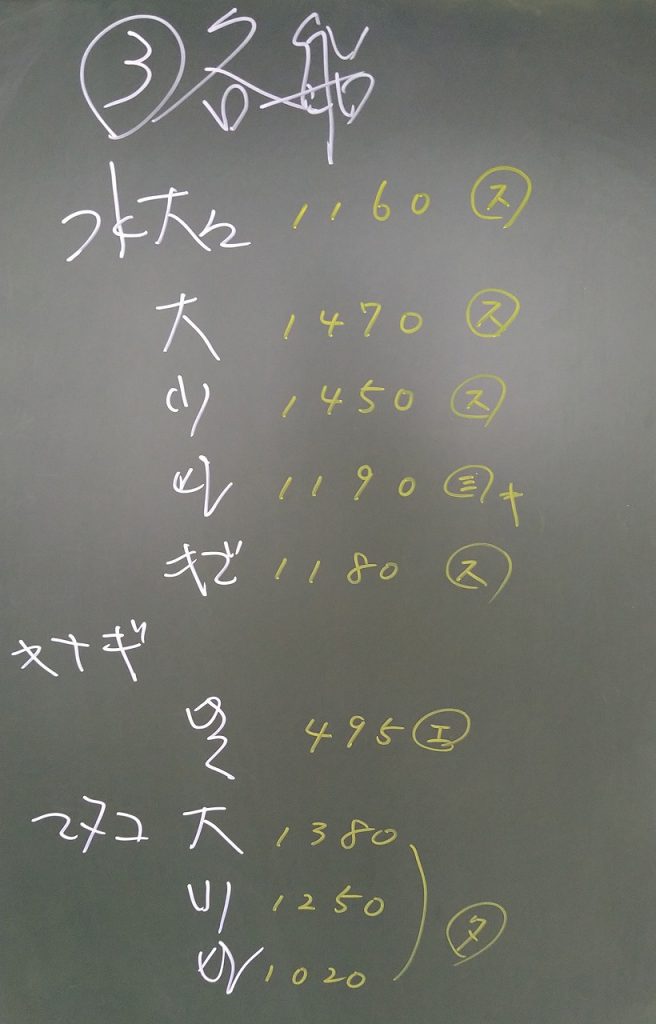 ③各船
水大 1160 ㋜
大 1470 ㋜
小 1450 ㋜
1190 ㊂キ
キズ 1180 ㋜
キナギ
495 ㋓
マタコ 大 1380
小 1250
1020
㋟